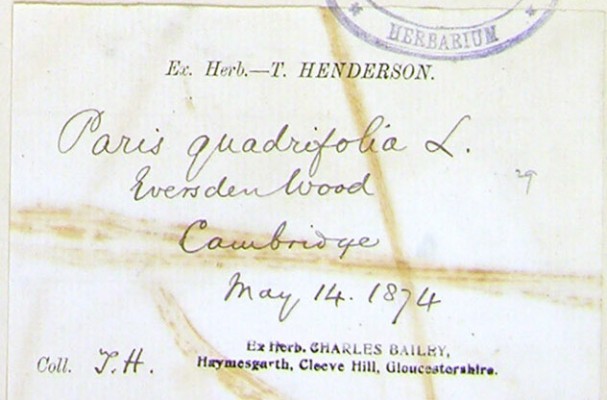 HERBARIUM
Ex. Herb.—T. HENDERSON.
Paris quadrifolia L.
Eversden Wood
29
Cambridge
May 14. 1874
Ex Herb. CHARLES BAILEY,
Haymesgarth, Cleeve Hill, Gloucestershire.
Coll. T.H.